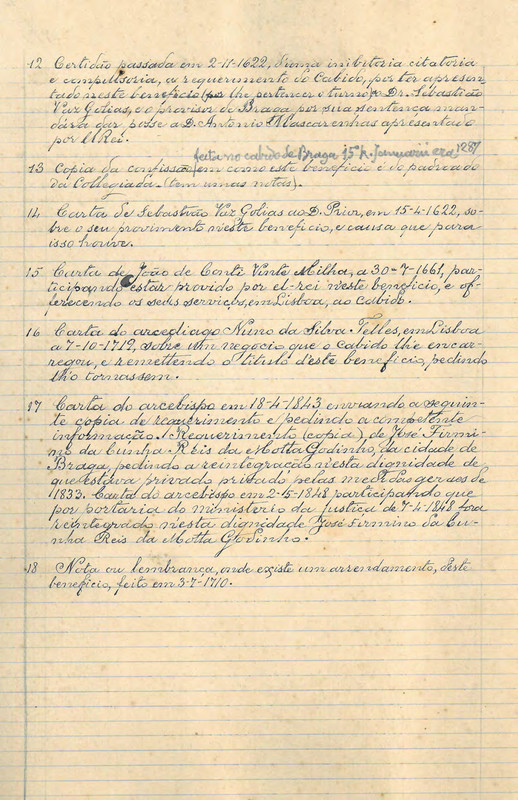 12 Certidão passada em 2-11-1622, d'uma inibitoria citatoria
e compulsoria, a requerimento do Cabido, por ter apresen-
tado neste beneficio (por lhe pertencer o turno) a Dr. Sebastião
Vaz Golias, e o provisor de Braga por sua sentença man-
dára dar posse a D. Antonio Mascarenhas apresentado
por El Rei.
feita no cabido de Braga 15 k. Januarii era 1287
13 Copia da confissão em como este beneficio é do padroado
da Collegiada (tem umas notas).
14 Carta de Sebastião Vaz Golias ao D. Prior, em 15-4-1622, so-
bre o seu provimento n'este beneficio, e causa que para
isso houve.
15 Carta de João de Conti Vinte Milha, a 30-7-1661, par-
ticipando estar provido por el-rei neste beneficio, e of-
ferecendo os seus serviços, em Lisboa, ao cabido.
16 Carta do arcediago Nuno da Silva Telles, em Lisboa
a 7-10-1712, sobre um negocio que o cabido lhe encar-
regou, e remettendo o titulo d'este beneficio, pedindo
lh'o tornassem.
17 Carta do arcebispo em 18-4-1843 enviando a seguin-
te copia de requerimento e pedindo a competente
informação. Requerimento (copia) de José Firmi-
no da Cunha Reis da Motta Godinho, da cidade de
Braga, pedindo a reintegração n'esta dignidade de
que estava privado pelas medidas geraes de
1833. Carta do arcebispo em 2-5-1848 participando que
por portaria do ministerio da Justiça de 7-4-1848 fora
reintegrado n'esta dignidade José Firmino da Cu-
nha Reis da Motta Godinho.
18 Nota ou lembrança, onde existe um arrendamento, deste
beneficio, feito em 3-7-1710.